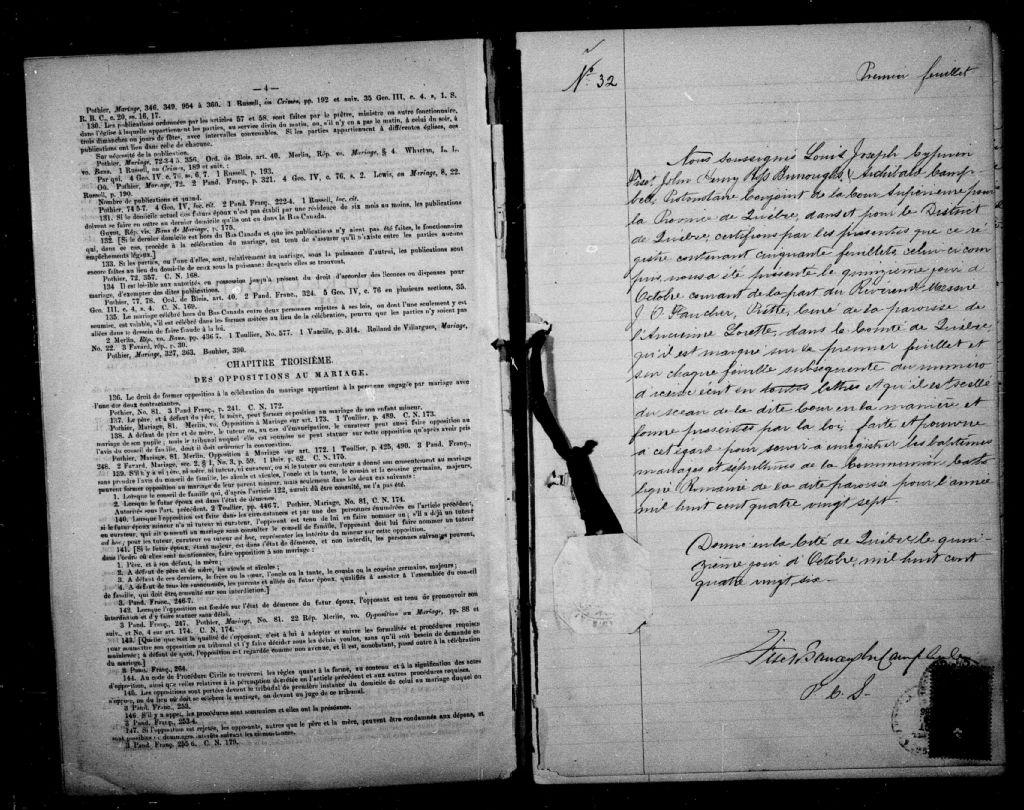 — 4 —
Pothier, Mariage, 346, 349, 954 à 360. 1 Russell, on Crimes, pp. 192 et suiv. 35 Geo. III, c. 4. s, 1. S.
R. B. C., c. 20, ss. 16, 17.
130. Les publications ordonnées par les articles 57 et 58, sont faites par le prêtre, ministre ou autre fonctionnaire,
dans l'église à laquelle appartiennent les parties, au service divin du matin, ou, s'il n'y en a pas le matin, à celui du soir, à
trois dimanches ou jours de fêtes, avec intervalles convenables. Si les parties appartiennent à différentes églises, ces
publications ont lieu dans celle de chacune.
Sur nécessité de la publication.
Pothier, Mariage, 72-3 4 5. 356, Ord. de Blois, art. 40. Merlin, Rép. vo. Mariage, § 4. Wharton, L. L.
vo. Bans. 1 Russell, on Crimes, 189 et suiv. ;
Par qui. 4 Geo. IV c. 76, ss. 6, 7. 1 Russell, p. 193.
Où. Pothier, Mariage, 72. 2 Pand. Franç., p. 321. 4 Geo. IV, c. 76, s. 2. Lewis, on Mariage, 8, 22.
Russell, p. 190.
Nombre de publications et quand.
Pothier, 74 5-7. 4 Geo. IV, loc. cit. 2 Pand. Franç., 222-4. 1 Russell, loc. cit.
131. Si le domicile actuel des futurs époux n'est pas établi par une résidence de six mois au moins, les publications
doivent se faire en outre au dernier domicile qu'ils ont eu dans le Bas Canada.
Guyot, Rép. vis. Bans de Mariage, p. 175.
132. [Si le dernier domicile est hors du Bas Canada et que les publications n'y aient pas été faites, le fonctionnaire
qui, dans ce cas, procède à la célébration du mariage, est tenu de s'assurer qu'il n'existe entre les parties aucuns
empêchements légaux.]
133. Si les parties, ou l'une d'elles, sont, relativement au mariage, sous la puissance d'autrui, les publications sont
encore faites au lieu du domicile de ceux sous la puissance desquels elles se trouvent.
Pothier, 72, 357. C. N. 168.
134 Il est loisible aux autorités, en possession jusqu'à présent du droit d'accorder des licences ou dispenses pour
mariage, d'exempter des dites publications.
Pothier, 77, 78. Ord. de Blois, art. 40. 2 Pand. Franç., 324. 5 Geo. IV, c. 76 en plusieurs sections, 35.
Geo. III. c. 4, s. 4. C. N. 169.
135. Le mariage célébré hors du Bas Canada entre deux personnes sujettes à ses lois, ou dont l'une seulement y est
soumise, est valable, s'il est célébré dans les formes usitées au lieu de la célébration, pourvu que les parties n'y soient pas
allées dans le dessein de faire fraude à la loi.
2 Merlin, Rép. vo. Bans, pp. 436 7. 1 Toullier, No. 577. 1 Vazeille, p. 314. Rolland de Villargues, Mariage,
No. 22. 3 Favard, rép., p. 30.
Pothier, Mariage, 327, 363. Bouhier, 390.
CHAPITRE TROISIÈME.
DES OPPOSITIONS AU MARIAGE.
136. Le droit de former opposition à la célébration du mariage appartient à la personne engagée par mariage avec
l'une des deux contractantes.
Pothier, No. 81. 3 Pand. Franç., p. 241. C. N. 172.
137. Le père, et à défaut du père, la mère, peut former opposition au mariage de son enfant mineur.
Pothier, Mariage, 81. Merlin, vo. Opposition à Mariage sur art. 173. 1 Toullier, p. 489. C. N. 173.
138. A défaut de père et de mère, le tuteur ou, au cas d'émancipation, le curateur peut aussi faire opposition au
mariage de son pupille ; mais le tribunal auquel elle est soumise ne peut statuer sur cette opposition qu'après avoir pris
l'avis du conseil de famille, dont il doit ordonner la convocation.
Pothier, Mariage, 81. Merlin, Opposition à Mariage, sur art. 172. 1 Toullier, p. 425, 490. 3 Pand. Franç.,
248. 2 Favard, Mariage, sec. 2, § 1, No. 3, p. 59. C. N. 175.
139. S'il n'y a ni père, ni mère, ni tuteur, ni curateur, ou si le tuteur ou curateur a donné son consentement au mariage
sans prendre l'avis du conseil de famille, les aïeuls et aïeules, l'oncle et la tante, le cousin et la cousine germains, majeurs,
peuvent former opposition au mariage de leur parent mineur, mais seulement dans les deux cas suivants :
1. Lorsque le conseil de famille qui, d'après l'article 122, aurait dû être consulté, ne l'a pas été.
2. Lorsque le futur époux est dans l'état de démence.
Autorités sous l'art. précédent. 2 Toullier, pp. 446 7. Pothier, Mariage, No. 81, C. N. 174.
140. Lorsque l'opposition est faite dans les circonstances et par une des personnes énumérées en l'article précédent,
si le futur époux mineur n'a ni tuteur ni curateur, l'opposant est tenu de lui en faire nommer un ; s'il a déjà un tuteur
ou curateur, qui ait consenti au mariage sans consulter le conseil de famille, l'opposant doit lui faire nommer un tuteur
ad hoc ; pour les tuteur, curateur ou tuteur ad hoc, représenter les intérêts du mineur sur cette opposition.
141. [Si le futur époux, étant majeur, est dans l'état de démence, et non interdit, les personnes suivantes peuvent,
dans l'ordre où elles sont mentionnées, faire opposition à son mariage :
1. Père, et à son défaut, la mère ;
2. A défaut de père et de mère, les aïeuls et aïeules ;
3. A défaut de ces derniers, le frère ou la sœur, l'oncle ou la tante, le cousin ou la cousine germains, majeurs ;
4. A défaut de tous les susnommés, les parents et alliés du futur époux, qualifiés à assister à l'assemblée du conseil
de famille, qui doit être consulté sur son interdiction.]
3. Pand. Franç., 246-7.
142. Lorsque l'opposition est fondée sur l'état de démence du futur époux, l'opposant est tenu de promouvoir son
interdiction et d'y faire statuer sans délai.
3 Pand. Franç., 247. Pothier, Mariage, No. 81. 22 Rép. Merlin, vo. Opposition au Mariage, pp. 88 et
suiv., et No. 4 sur art. 174. C. N. 174.
143. [Quelle que soit la qualité de l'opposant, c'est à lui à adopter et suivre les formalités et procédures requises
pour soumettre son opposition au tribunal et l'y faire décider sous les délais voulus, sans qu'il soit besoin de demande en
mainlevée ; à défaut de quoi, l'opposition est regardée comme non avenue, et il est, nonobstant, passé outre à la célébration
du mariage.]
3 Pand. Franç., 264.
144. Au code de Procédure Civile se trouvent les règles quant à la forme, au contenu et à la signification des actes
d'opposition, ainsi que celles relatives à la péremption décrétée en l'article précédent et aux autres procédures requises.
145. Les oppositions sont portées devant le tribunal de première instance du domicile de celui au mariage duquel on
s'oppose, ou du lieu où doit se célébrer le mariage, ou devant un juge de ce tribunal.
3 Pand. Franç., 253.
146. S'il y a appel, les procédures sont sommaires et elles ont la préséance.
3 Pand. Franç., 253-4.
147. Si l'opposition est rejetée, les opposants, autres que le père et la mère, peuvent être condamnés aux dépens, et
sont passibles de dommages-intérêts suivant les circonstances.
3 Pand. Franç. 255 6. C. N. 179.
No 32
Premier feuillet
Nous soussignés Louis Joseph Cyprien
Fiset, John Henry Ross Burroughs, Archibald Camp-
bell, Protonotaire Conjoint de la Cour Supérieure pour
la Province de Québec, dans et pour le District
de Québec, certifions par les présentes que ce ré-
gistre contenant cinquante feuillets celui-ci com-
pris, nous a été présenté le quinzième jour d'
Octobre courant de la part du Révérend Messire
J. O. Faucher, Prêtre, Curé de la paroisse de
l'Ancienne Lorette, dans le comté de Québec,
qu'il est marqué sur le premier feuillet et
sur chaque feuille subséquente du numéro
d'icelle écrit en toutes lettres et qu'il est scellé
du sceau de la dite Cour en la manière et
forme présentes par la loi, faite et pourvue
à cet égard pour servir à enregistrer les baptêmes
mariages et sépultures de la Communion Catho
lique Romaine de la dite paroisse pour l'année
mil huit cent quatre vingt sept.
Donné en la Cité de Québec le quin-
zième jour d'Octobre, mil huit cent
quatre vingt six.
P. C. S.